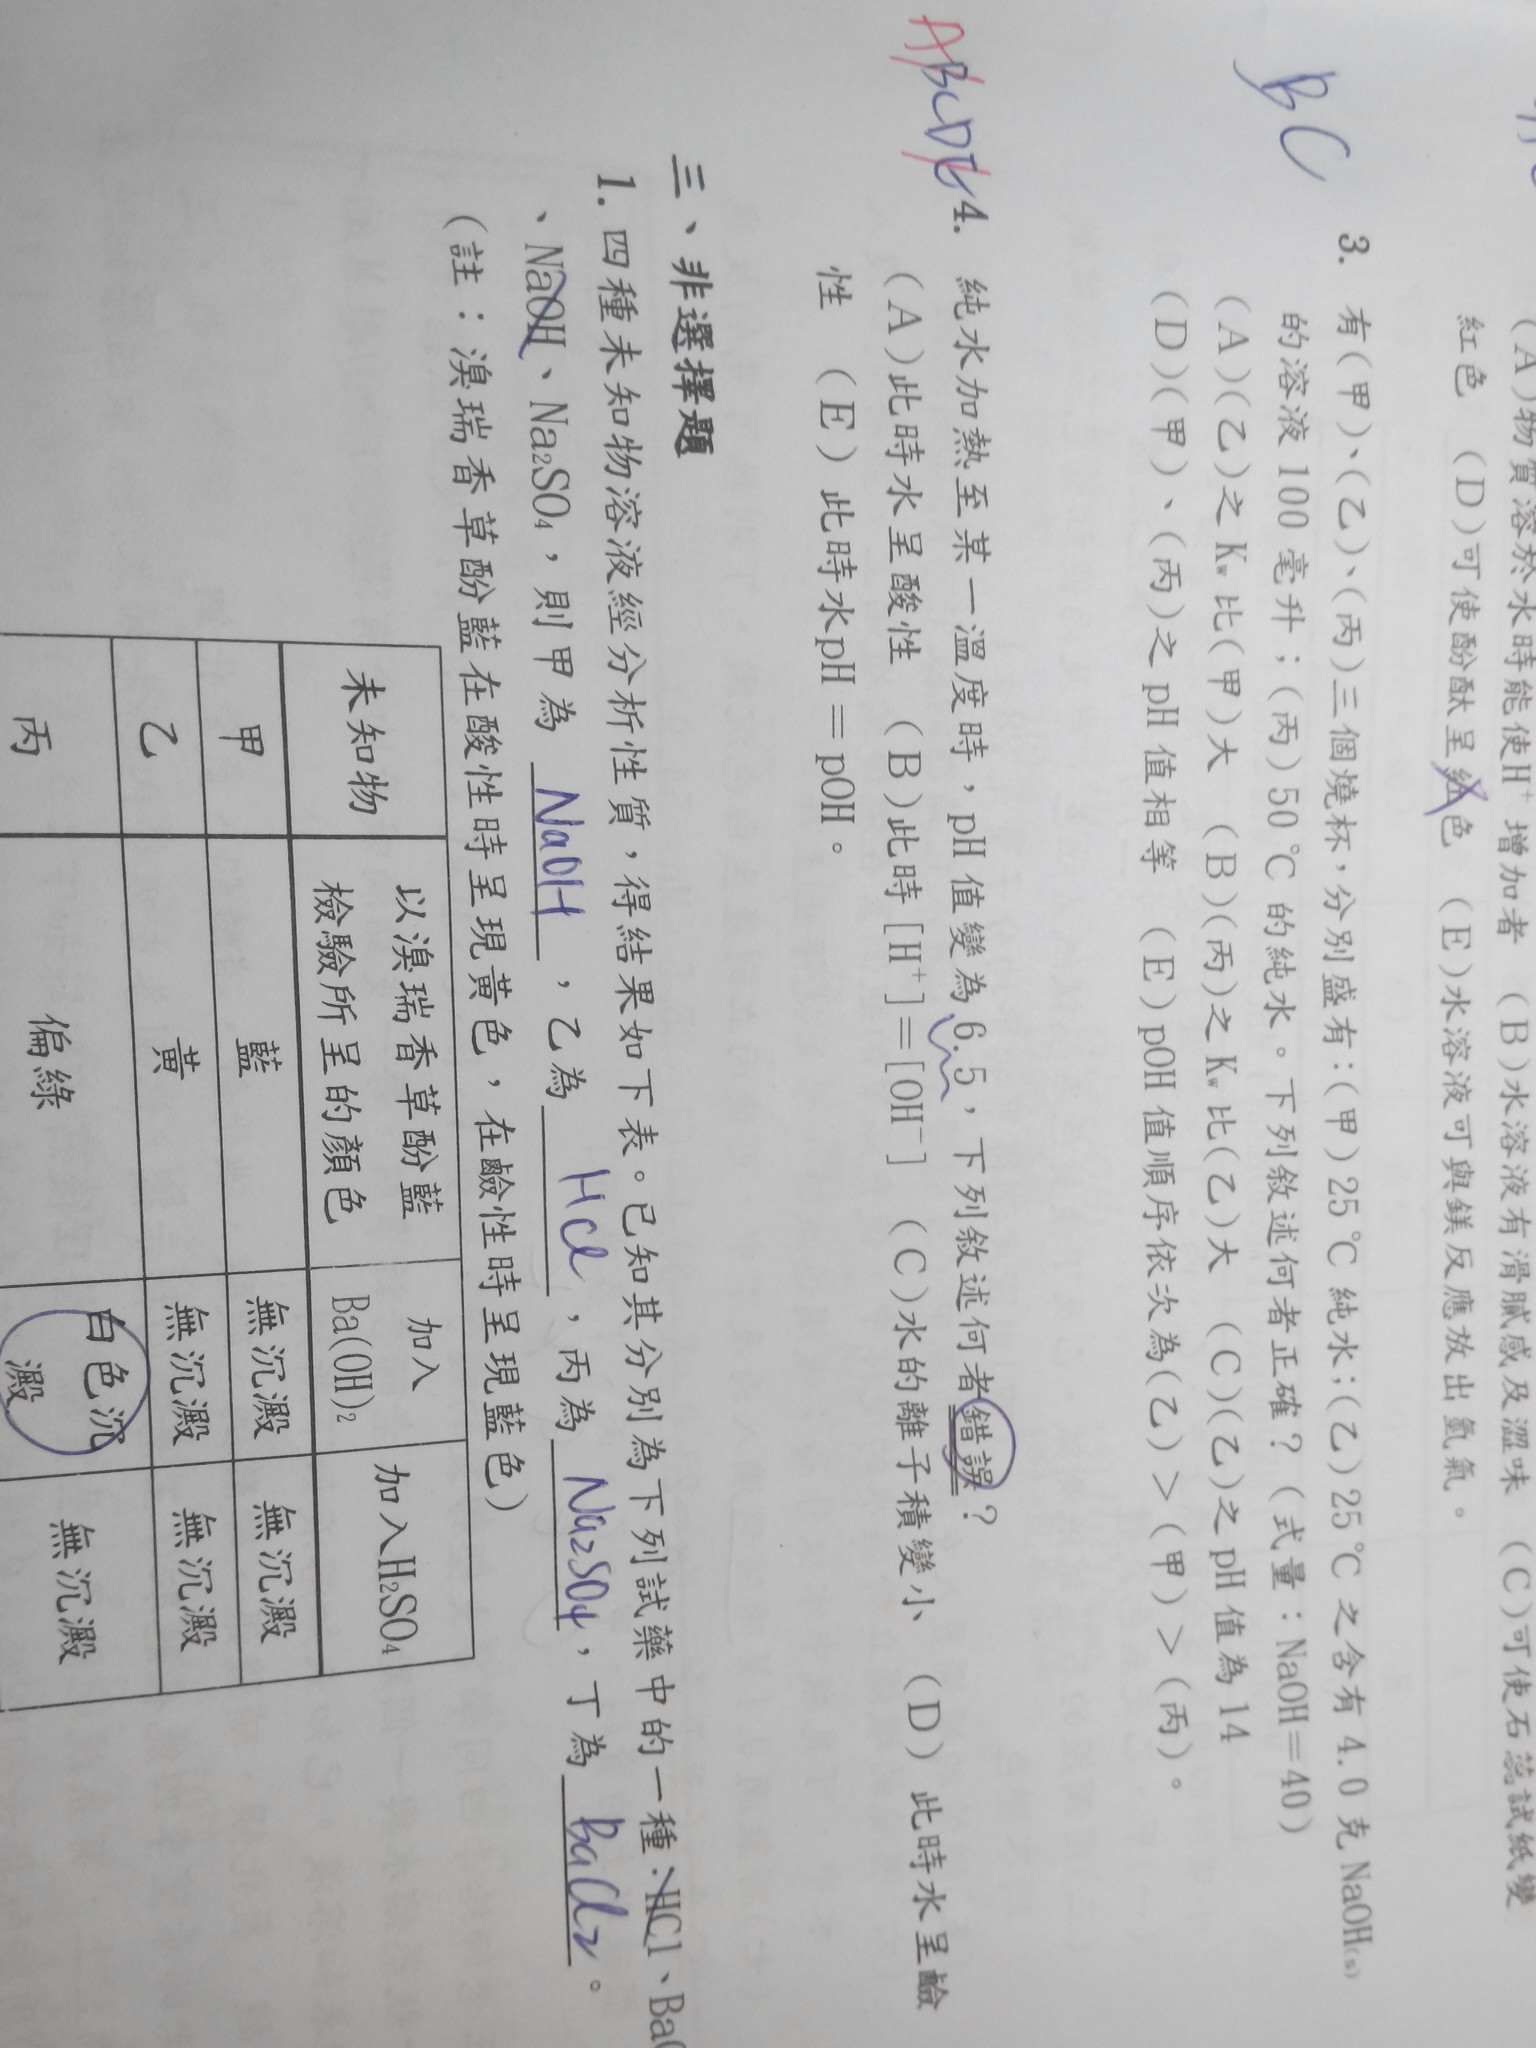 (A)物質溶於水時能使H⁺增加者 (B)水溶液有滑膩感及澀味 (C)可使石蕊試紙變
紅色 (D)可使酚酞呈紅色 (E)水溶液可與鎂反應放出氫氣。
BC
3. 有(甲)、(乙)、(丙)三個燒杯,分別盛有:(甲)25℃純水;(乙)25℃之含有4.0克NaOH(s)
的溶液100毫升;(丙)50℃的純水。下列敘述何者正確?(式量:NaOH=40)
(A)(乙)之Kw比(甲)大 (B)(丙)之Kw比(乙)大 (C)(乙)之pH值為14
(D)(甲)、(丙)之pH值相等 (E)pOH值順序依次為(乙)>(甲)>(丙)。
ABCDE
4. 純水加熱至某一溫度時,pH值變為6.5,下列敘述何者錯誤?
(A)此時水呈酸性 (B)此時[H⁺]=[OH⁻] (C)水的離子積變小 (D)此時水呈鹼
性 (E)此時水pH=pOH。
三、非選擇題
1. 四種未知物溶液經分析性質,得結果如下表。已知其分別為下列試藥中的一種:HCl、
、NaOH、Na₂SO₄,則甲為 NaOH ,乙為 HCl ,丙為 Na₂SO₄ ,丁為 BaCl₂ 。
(註:溴瑞香草酚藍在酸性時呈現黃色,在鹼性時呈現藍色)
未知物 以溴瑞香草酚藍檢驗所呈的顏色 加入Ba(OH)₂ 加入H₂SO₄
甲 藍 無沉澱 無沉澱
乙 黃 無沉澱 無沉澱
丙 偏綠 白色沉澱 無沉澱